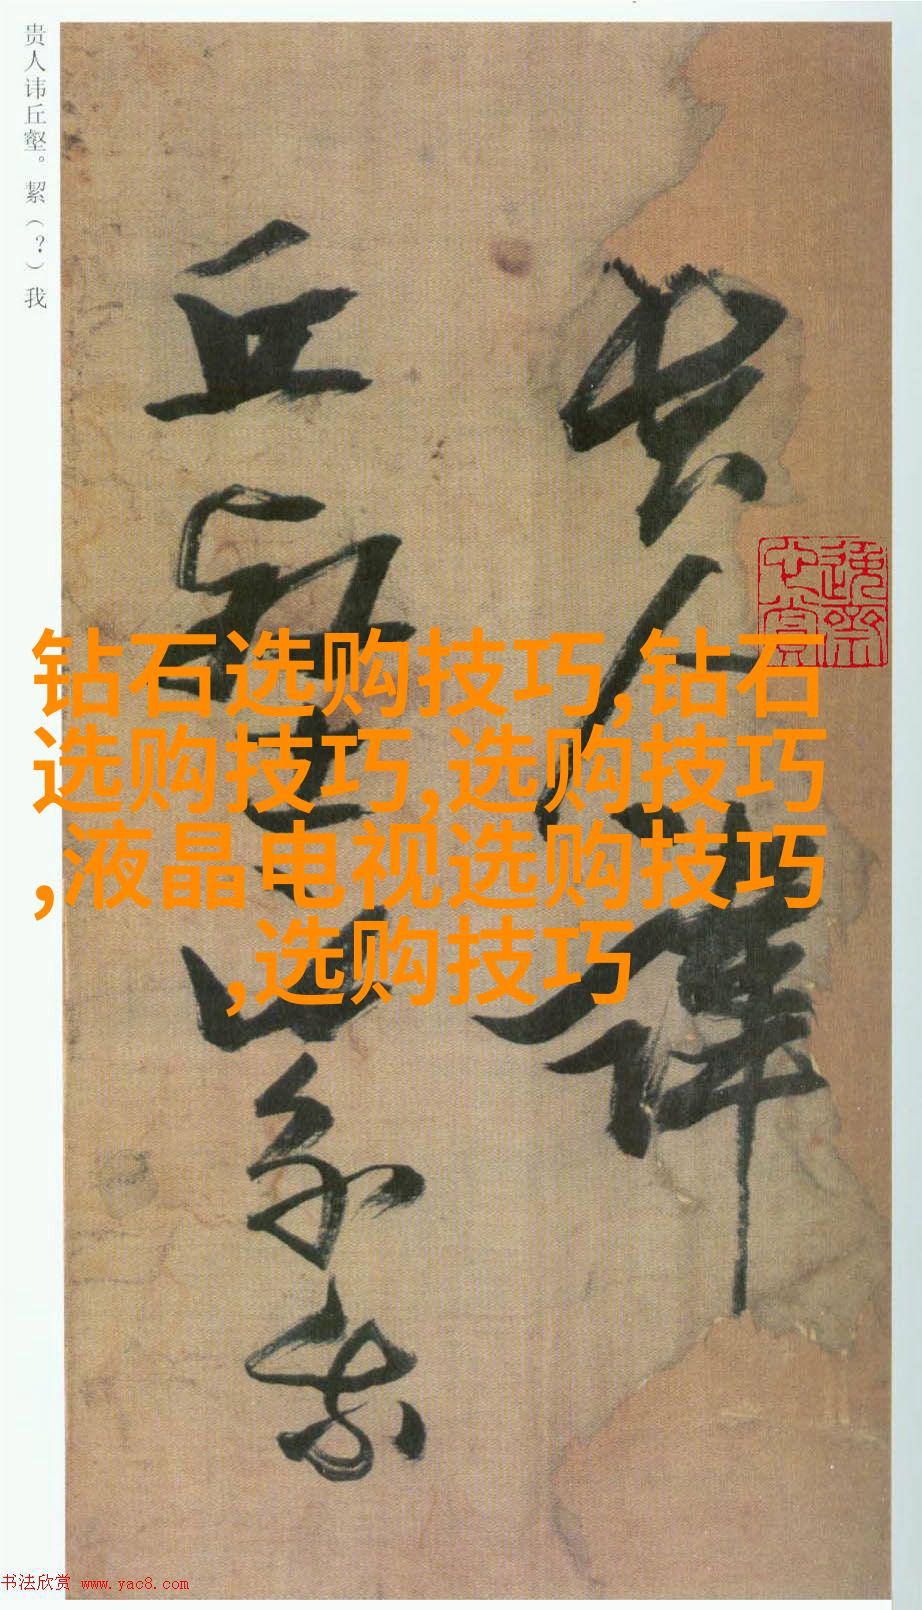 贵人讳丘壑。絜（？）我
贵人讳
丘壑山絜我
钻石选购技巧,钻石
选购技巧,选购技巧
,液晶电视选购技巧
,选购技巧
书法欣赏 www.yac8.com